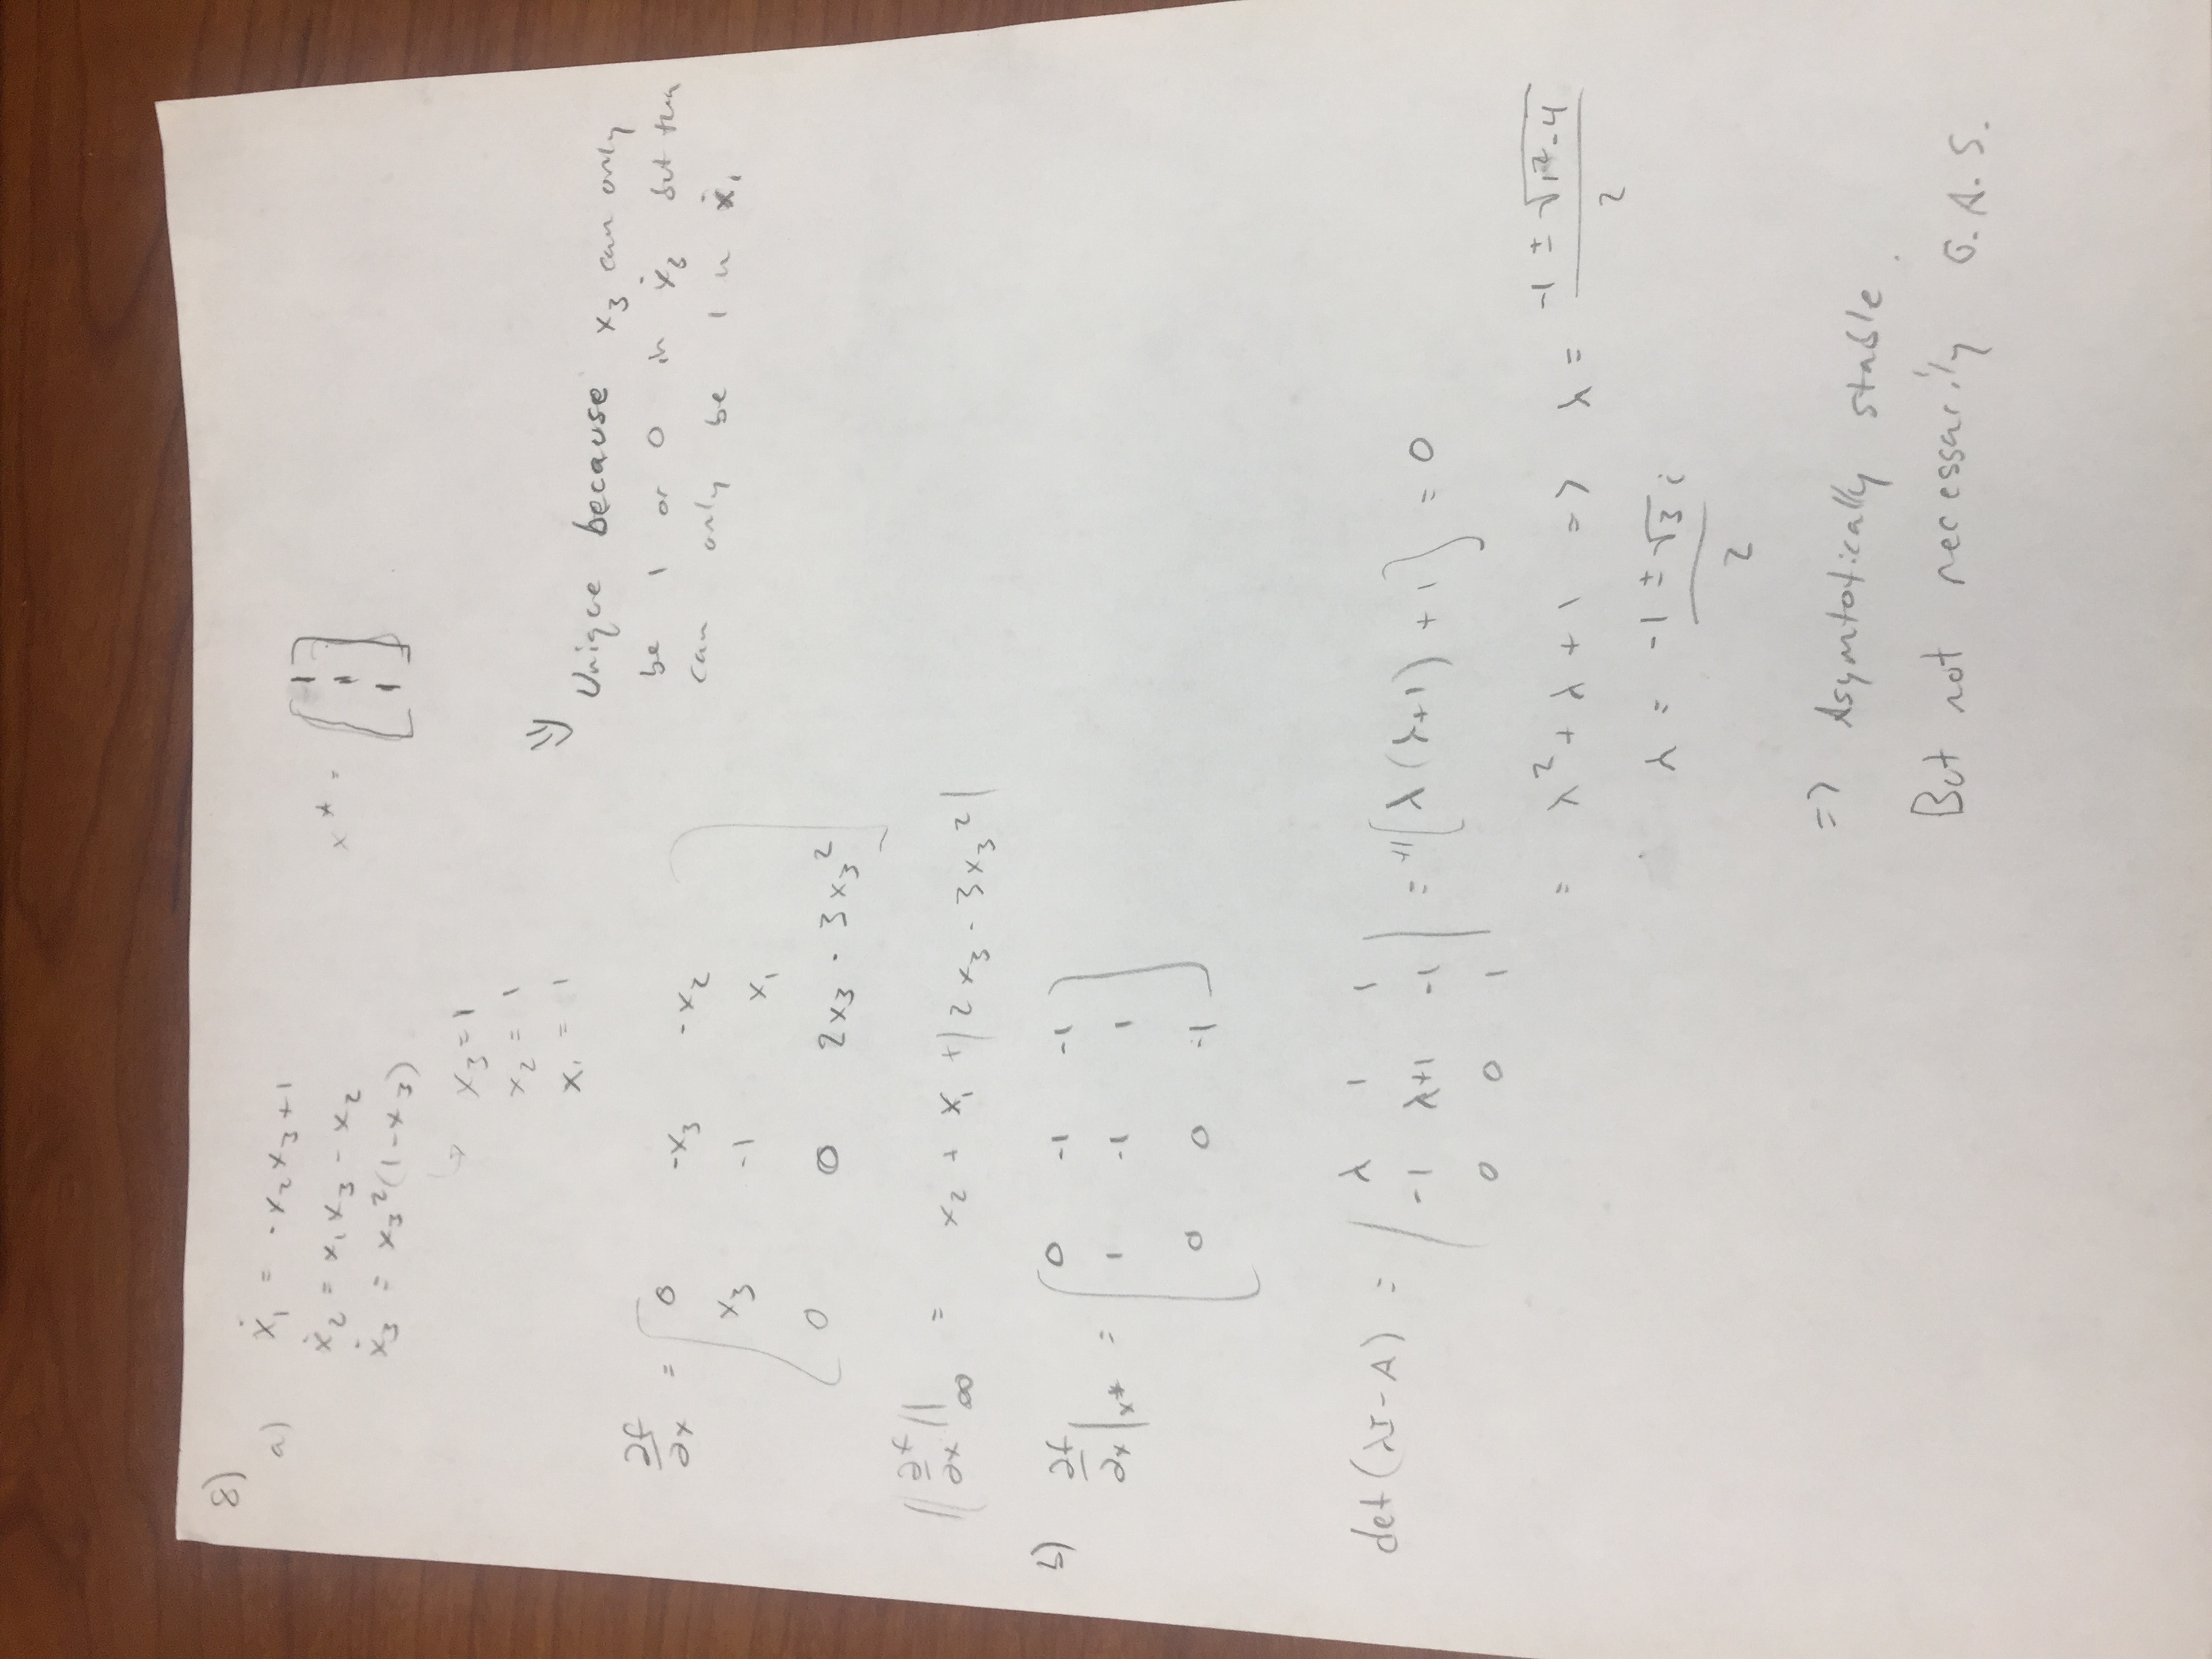 8)
a) ẋ₁ = -x₂x₃+1
ẋ₂ = x₁x₃ - x₂
ẋ₃ = x₃²(1-x₃)
x* = [1 1 1]
↳ x₃ = 1
x₂ = 1
x₁ = 1
⇓ Unique because x₃ can only
be 1 or 0 in ẋ₃ but then
can only be 1 in ẋ₁
∂f/∂x = [ 0 -x₃ -x₂
x₃ -1 x₁
0 0 2x₃ - 3x₃² ]
||∂f/∂x||∞ = x₂ + x₁ + |2x₃ - 3x₃²|
b) ∂f/∂x|x* = [ 0 -1 -1
1 -1 1
0 0 -1 ]
det(λI-A) = | λ 1 1
-1 λ+1 -1
0 0 1 | = +1[λ(λ+1) + 1] = 0
= λ² + λ + 1 => λ = (-1 ± √(1²-4))/2
λ = (-1 ± √3 i)/2
=> Asymtotically stable.
But not necessarily G.A.S.